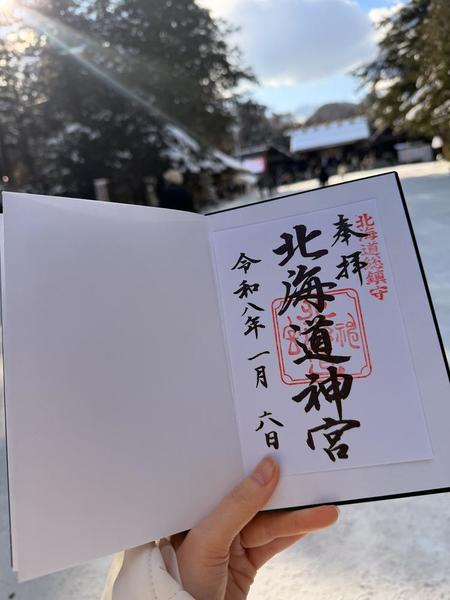 北海道総鎮守
奉拝
北海道神宮
令和八年一月六日